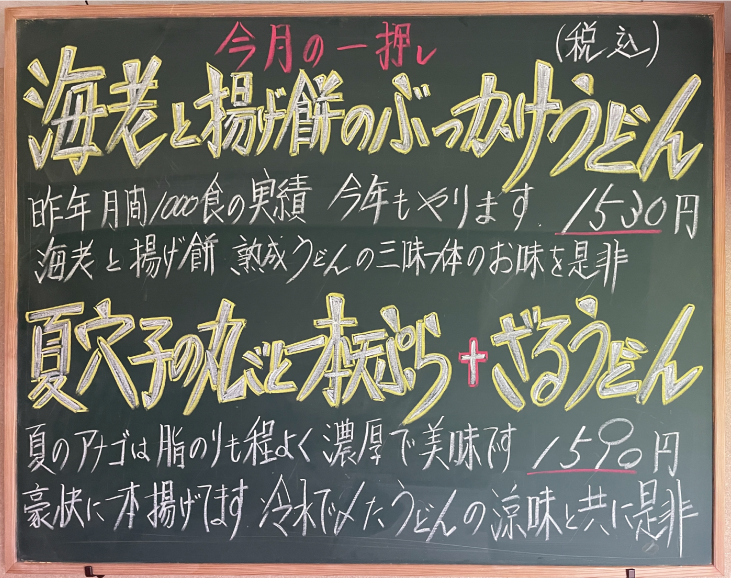 今月の一押し (税込)
海老と揚げ餅のぶっかけうどん
昨年月間1000食の実績 今年もやります。 1530円
海老と揚げ餅 熟成うどんの三味一体のお味を是非
夏穴子の丸ごと一本天ぷら+ざるうどん
夏のアナゴは脂のりも程よく濃厚で美味です 1590円
豪快に一本揚げてます 冷水で〆たうどんの涼味と共に是非